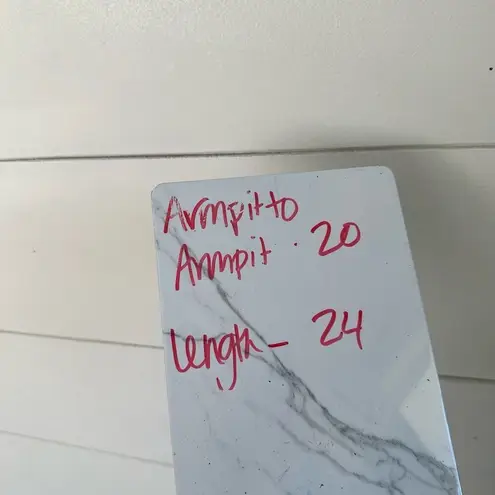 Armpit to
Armpit · 20
Length - 24